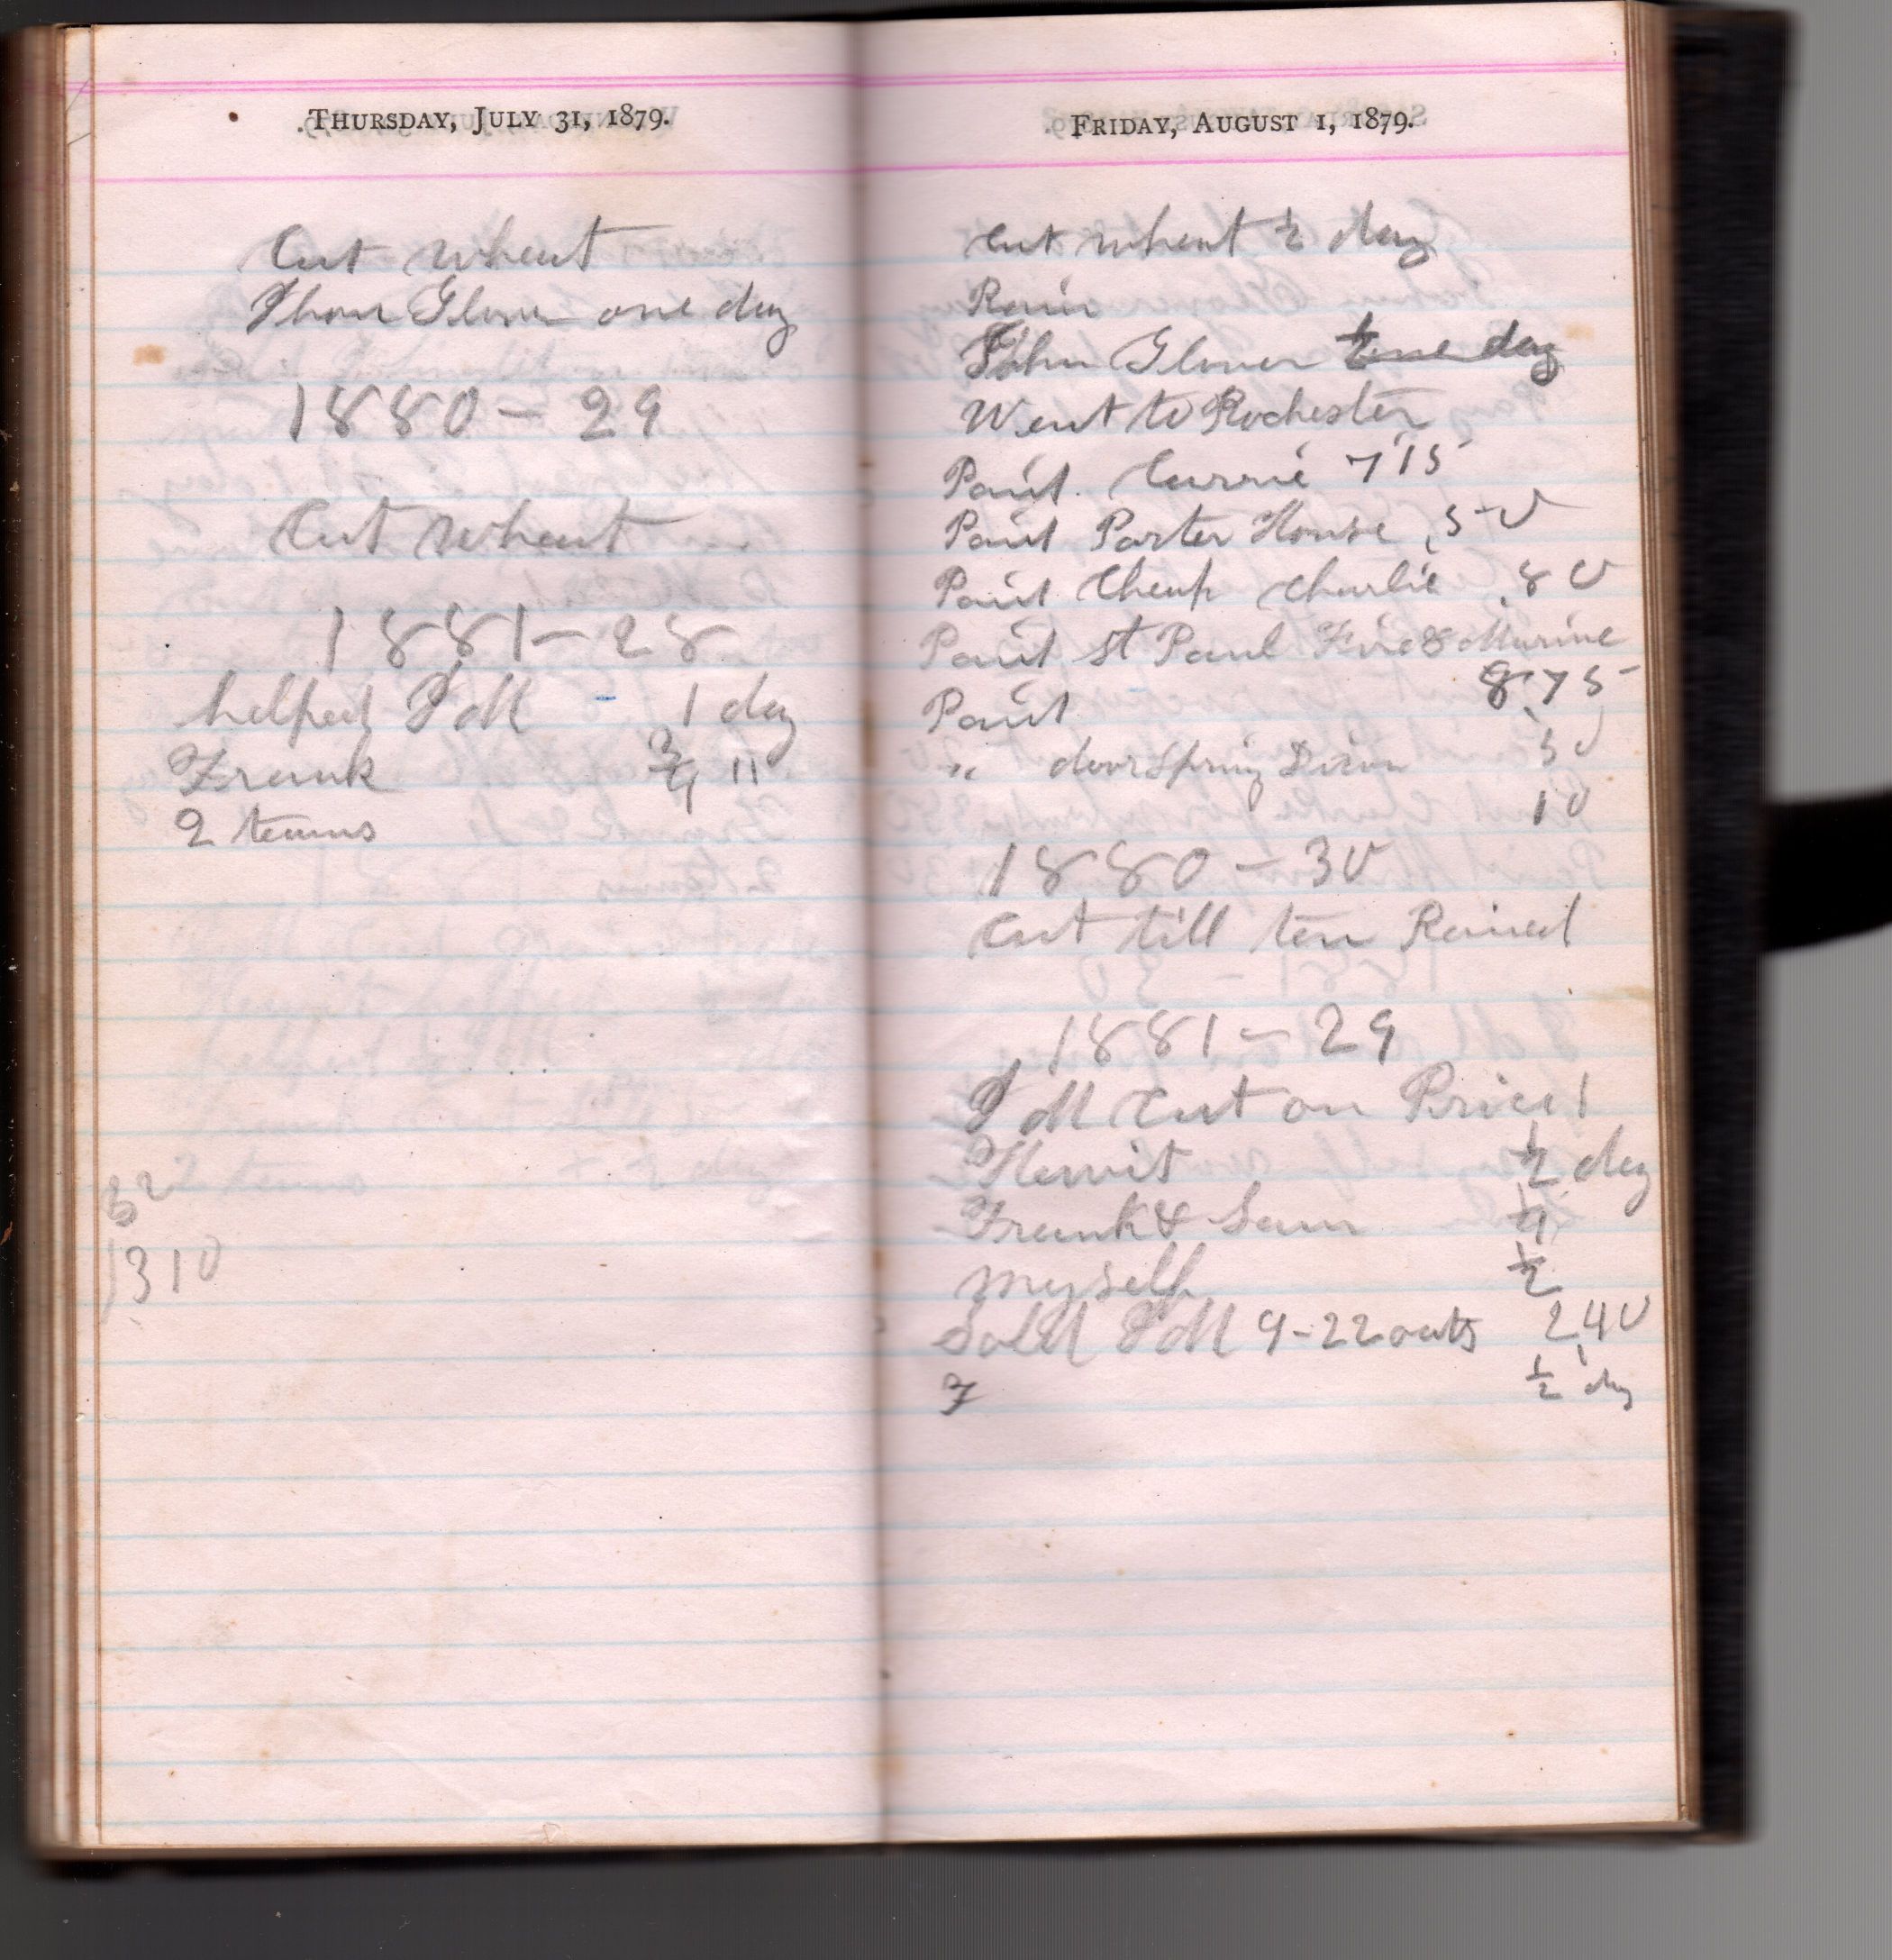 THURSDAY, JULY 31, 1879.
Cut wheat
Jhon Glover one day
1880 - 29
Cut wheat
1881 - 28
helped J M - 1 day
Frank 3/4 "
2 teams
1310
FRIDAY, AUGUST 1, 1879.
Cut wheat 1/2 day
Rain
John Glover 1/2 one day
Went to Rochester
Paid Currie 7 15
Paid Porter House ,50
Paid Cheap Charlie .80
Paid St Paul Fire & Marine
Paid 8.75
" door spring 50
10
1880 - 30
Cut till ten Rained
1881 - 29
J M Cut on Price 1
Hewit 1/2 day
Frank & Sam
myself 1/2
Sold J M 9-22 oats 2,40
F 1/2 day